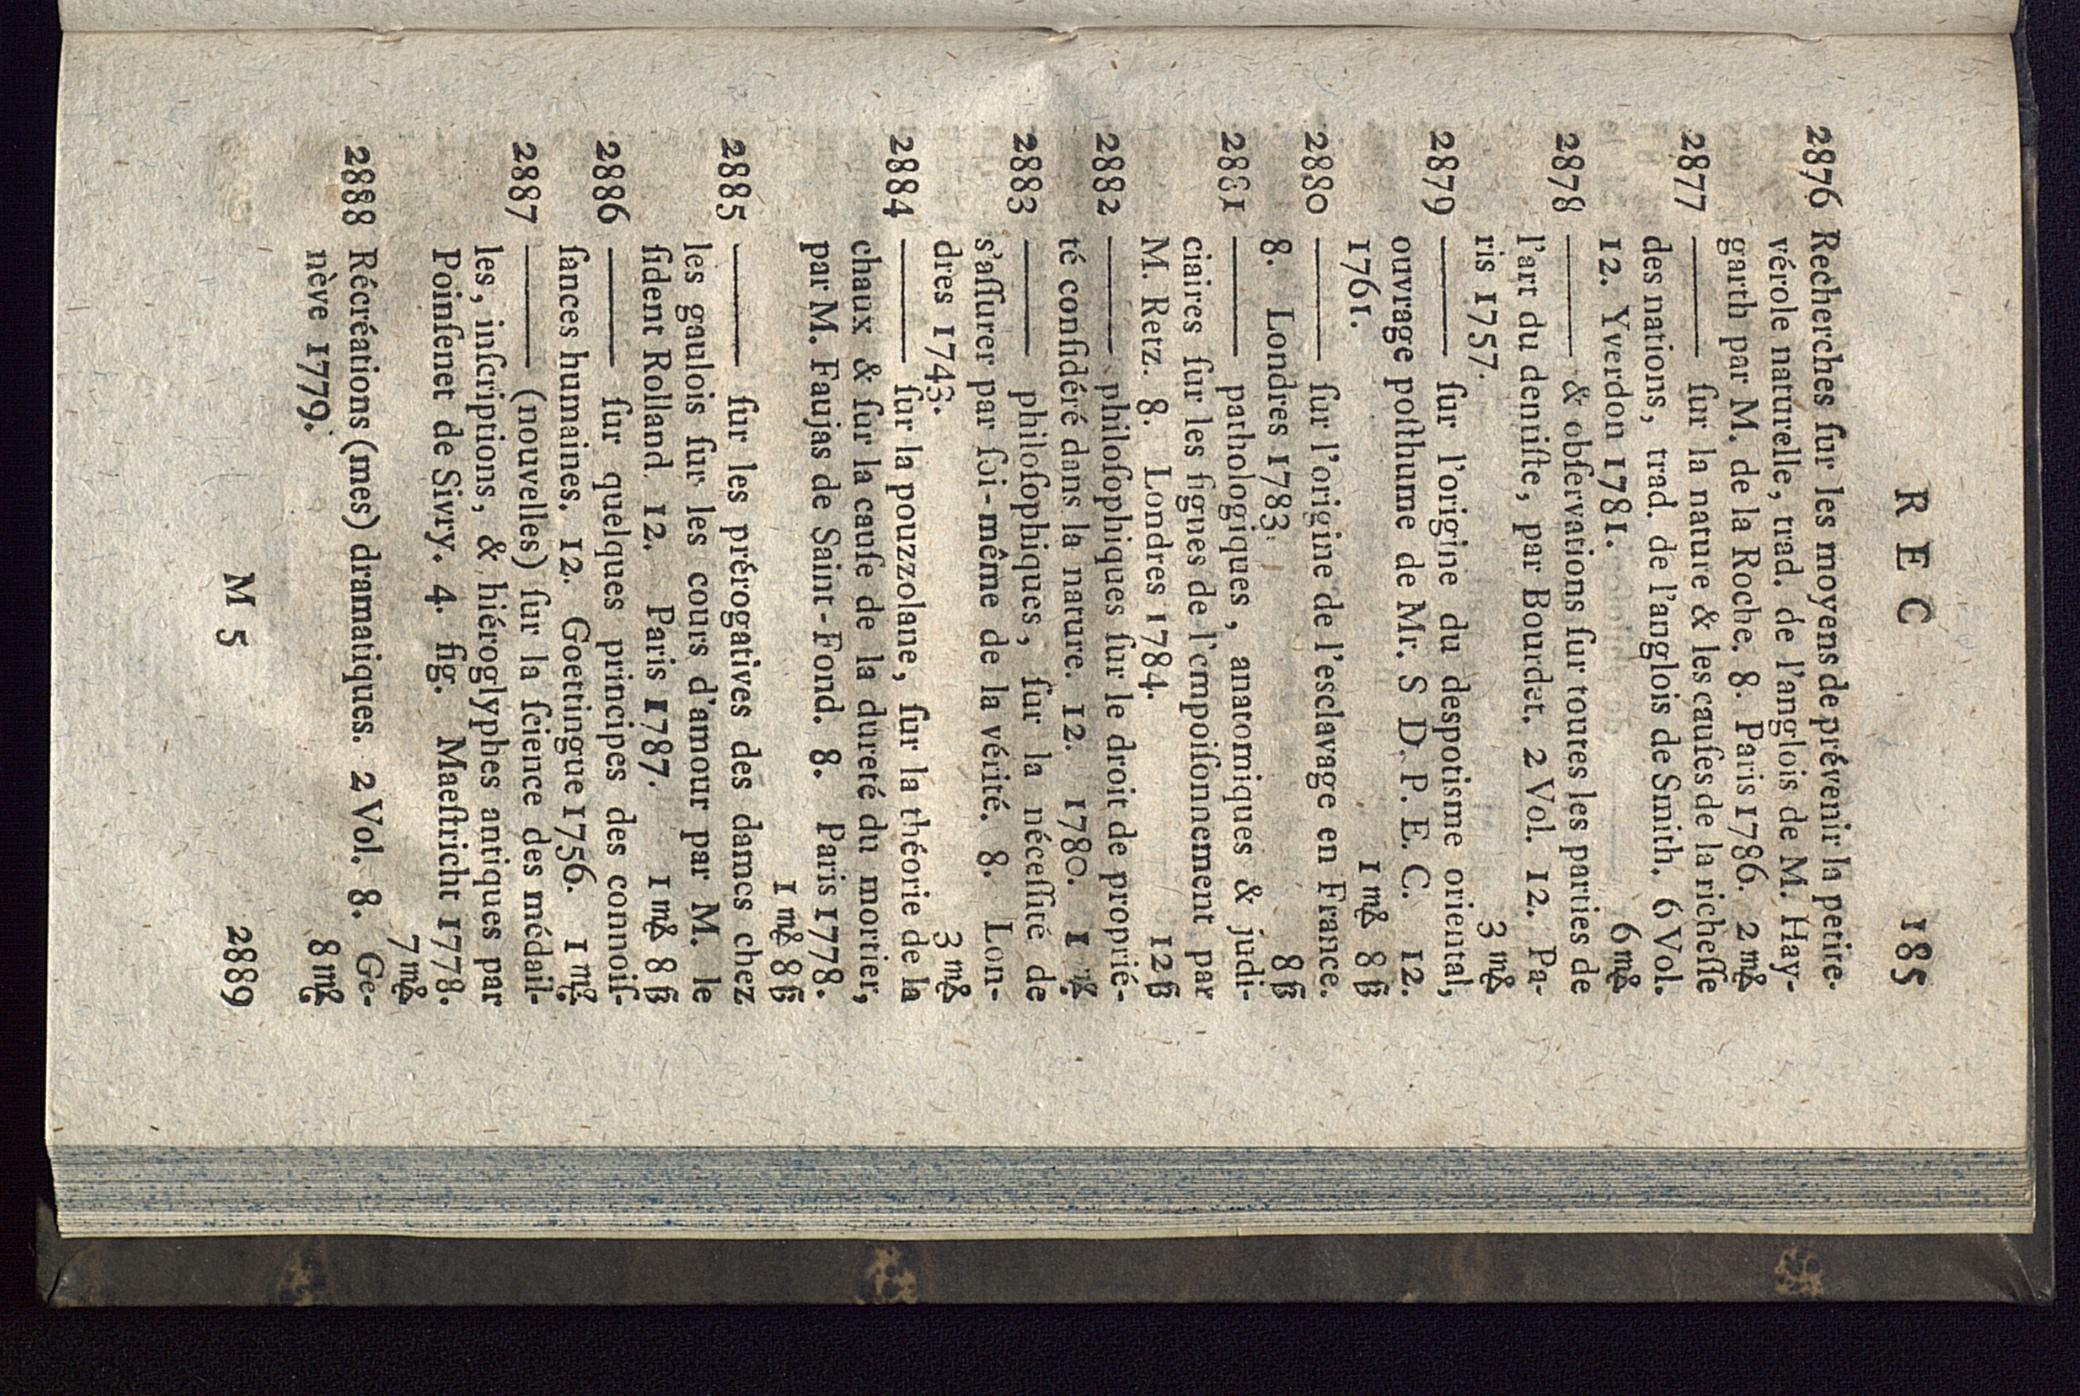 R E C 185
2876 Recherches ſur les moyens de prévenir la petite-
vérole naturelle, trad. de l'anglois de M. Hay-
garth par M. de la Roche. 8. Paris 1786. 2 m&
2877 ——— ſur la nature & les cauſes de la richeſſe
des nations, trad. de l'anglois de Smith. 6 Vol.
12. Yverdon 1781. 6 m&
2878 ——— & obſervations ſur toutes les parties de
l'art du dentiſte, par Bourdet. 2 Vol. 12. Pa-
ris 1757. 3 m&
2879 ——— ſur l'origine du despotisme oriental,
ouvrage poſthume de Mr. S D. P. E. C. 12.
1761. 1 m& 8 ß
2880 ——— ſur l'origine de l'esclavage en France.
8. Londres 1783. 8 ß
2881 ——— pathologiques, anatomiques & judi-
ciaires ſur les ſignes de l'empoiſonnement par
M. Retz. 8. Londres 1784. 12 ß
2882 ——— philoſophiques ſur le droit de proprié-
té conſidéré dans la nature. 12. 1780. 1 m&
2883 ——— philoſophiques, ſur la néceſſité de
s'aſſurer par ſoi-même de la vérité. 8. Lon-
dres 1743. 3 m&
2884 ——— ſur la pouzzolane, ſur la théorie de la
chaux & ſur la cauſe de la dureté du mortier,
par M. Faujas de Saint-Fond. 8. Paris 1778.
1 m& 8 ß
2885 ——— ſur les prérogatives des dames chez
les gaulois ſur les cours d'amour par M. le
ſident Rolland. 12. Paris 1787. 1 m& 8 ß
2886 ——— ſur quelques principes des connoiſ-
ſances humaines. 12. Goettingue 1756. 1 m&
2887 ——— (nouvelles) ſur la ſcience des médail-
les, inſcriptions, & hiéroglyphes antiques par
Poinſenet de Sivry. 4. fig. Maeſtricht 1778.
7 m&
2888 Récréations (mes) dramatiques. 2 Vol. 8. Ge-
nève 1779. 8 m&
M 5 2889